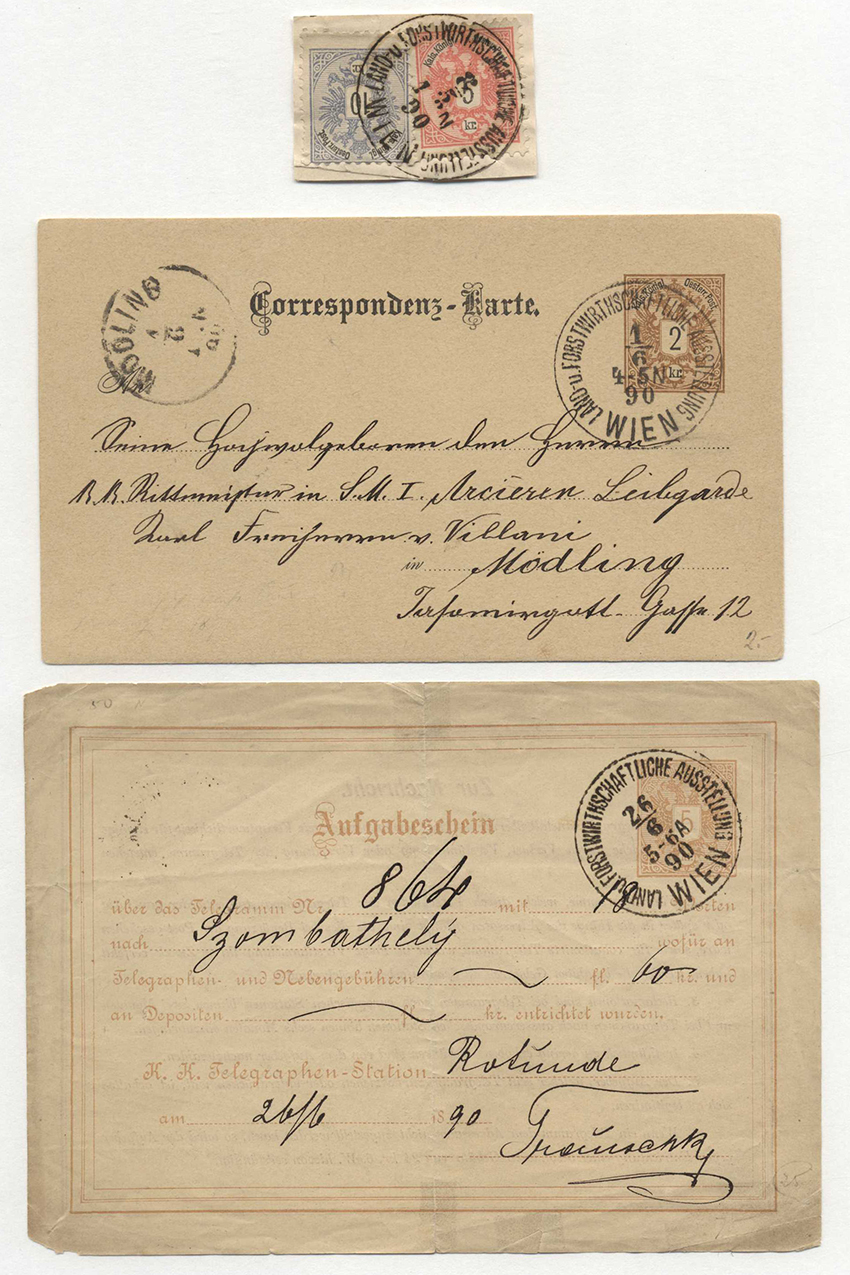 LAND-u.FORSTWIRTHSCHAFTLICHE AUSSTELLUNG
WIEN
90
10
5
kr.
Correspondenz-Karte.
MÖDLING
Kais. Königl. Oesterr. Post.
2
kr.
LAND-u.FORSTWIRTHSCHAFTLICHE AUSSTELLUNG
1/6
4-5N
90
WIEN
An
Seine Hochwolgeboren den Herrn
K.K. Rittmeister in S.M. I. Arcieren Leibgarde
Karl Freiherrn v. Villani
in Mödling
Jasomirgott-Gasse 12
2.-
50
LAND-u.FORSTWIRTHSCHAFTLICHE AUSSTELLUNG
26/6
5-6A
90
WIEN
5
Aufgabeschein
über das Telegramm Nr. 864 mit Worten
nach Szombathely wofür an
Telegraphen- und Nebengebühren fl. 60 kr. und
an Depositen fl. kr. entrichtet wurden.
K. K. Telegraphen-Station Rotunde
am 26/6 1890
25